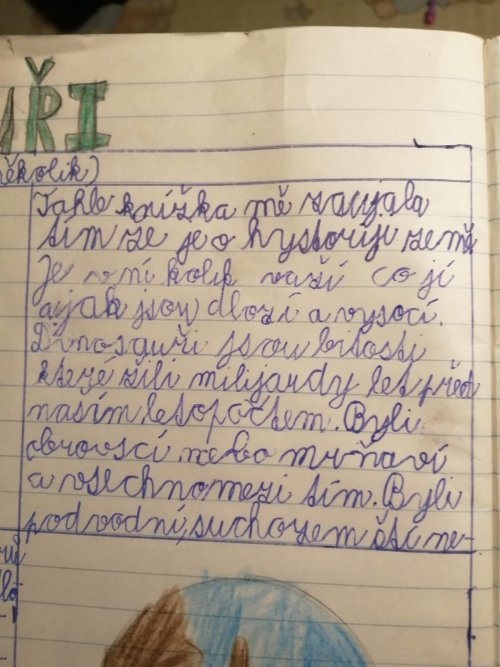 ŘI
několik)
Tahle knížka mě zaujala
tím ze je o hystoriji země
Je v ní kolik važí co jí
a jak jsou dlozí a vysocí.
Dinosauři jsou bitosti
které žili milijardy let před
naším letopočtem. Byli
obrovscí nebo mrňaví
a vsechno mezi tím. Byli
podvodní, suchozemští ne-